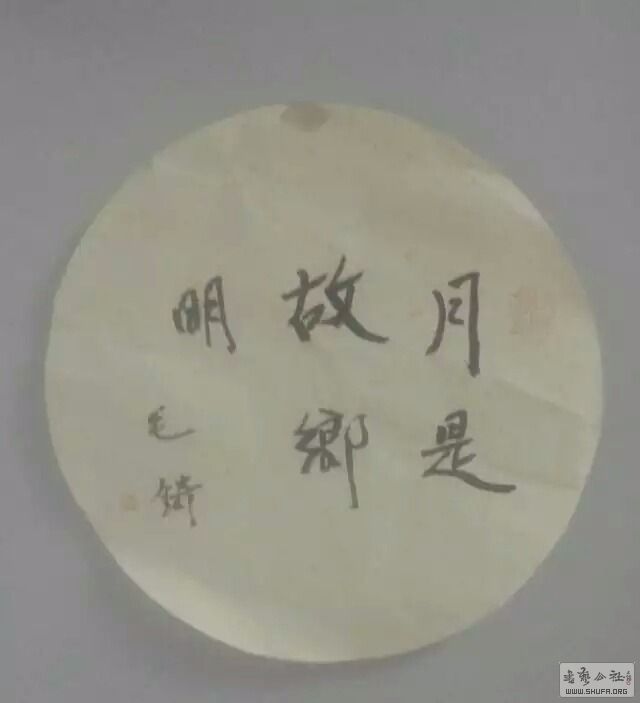 月是
故鄉
明
毛錡
書藝公社
WWW.SHUFA.ORG